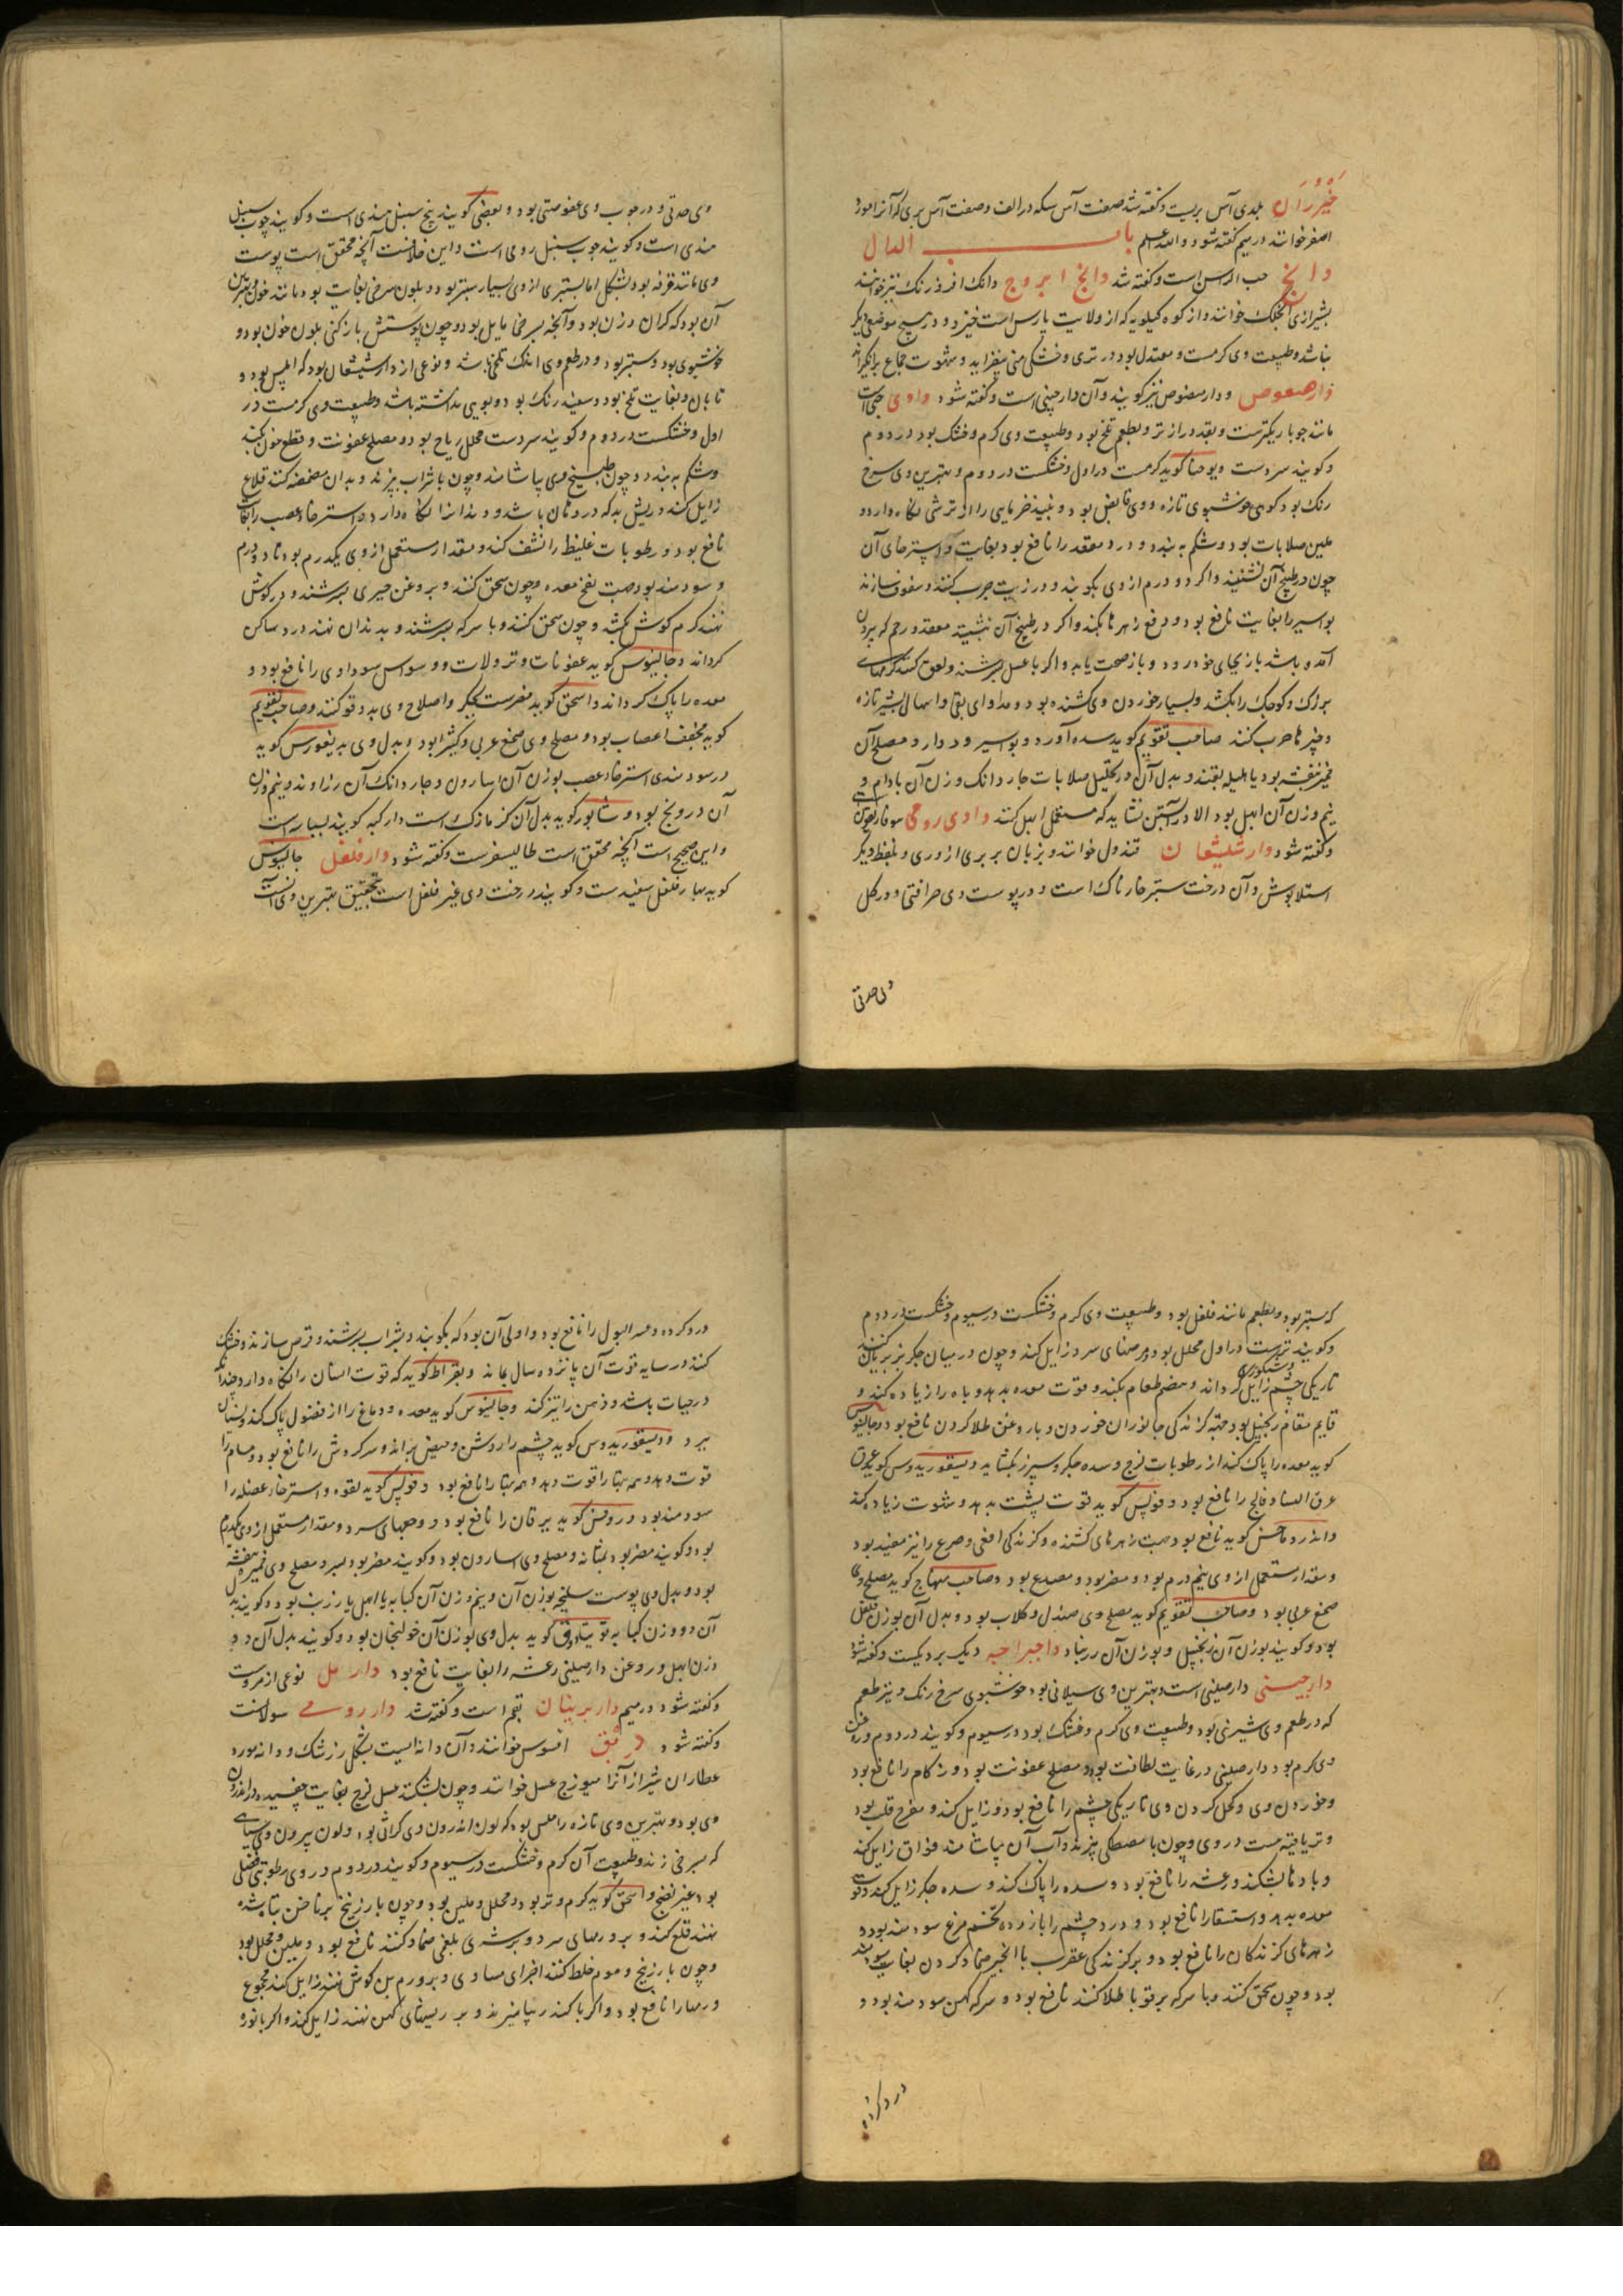 خیزران بلدی آس بریست و گفته شد صفت آس سکه در الف و صفت آس بری که آنرا مورد
اصفر خوانند در میم گفته شود والله اعلم باب الدال
دابج حب الاس است و گفته شد دابج ابروج دانک افروزنک نیز خوانند
بشیرازی انجکک خوانند و از کوه کیلویه که از ولایت پارس است خیزد و در هیچ موضعی دیگر
نباشد و طبیعت وی گرمست و معتدل بود در تری و خشکی منی بیفزاید و شهوت جماع برانگیزاند
دارصعوص و دارمصنوص نیز گویند و آن دارچینی است و گفته شود داوی حبی است
مانند جو باریکترست و بقد درازتر و بطعم تلخ بود و طبیعت وی گرم و خشک بود در دوم
و گویند سردست و یوحنا گوید گرمست در اول و خشکست در دوم و بهترین وی سرخ
رنک بود کوهی خوشبوی تازه و وی قابض بود و نبیذ خرمایی را از ترشی نگاه دارد و
ملین صلابات بود و شکم ببندد و درد مقعد را نافع بود بغایت و استرخای آن
چون در طبیخ آن نشینند و اگر دو درم از وی بکوبند و در زیت چرب کنند و سفوف سازند
بواسیر را بغایت نافع بود و دفع زهرها بکند و اگر در طبیخ آن نشیند مقعد و رحم که بیرون
آمده باشد بازجای خود رود و باز صحت یابد و اگر با عسل بسرشند و لعق کنند کرمهای
بزرک و کوچک را بکشد و بسیار خوردن وی کشنده بود و مداوای بقی و اسهال بشیر تازه
و چیزها چرب کنند صاحب تقویم گوید سده آورد و بواسیر و دوار و مصلح آن
خمیر بنفشه بود یا هلیله بقند و بدل آن در تحلیل صلابات چار دانک وزن آن بادام و
نیم وزن آن ابهل بود الا در آبستن نشاید که مستعمل ابهل کنند داوی رومی هوفاریقون است
و گفته شود دارشیشعان قندول خوانند و بزبان بربری ازوری و بلفظ دیگر
استلابوش و آن درخت ستبر خارناک است و در پوست وی حرافتی و در گل
وی حدتی
وی حدتی و در چوب وی عفوصتی بود و بعضی گویند بیخ سنبل هندی است و گویند چوب سنبل
هندی است و گویند چوب سنبل رومی است و این خلافست آنچه محقق است پوست
وی مانند قرفه بود بشکل اما ستبری از وی بسیار ستبرتر بود و بلون سرخی بغایت بود مانند خون بهترین
آن بود که گران وزن بود و آنچه بسرخی مایل بود و چون پوستش بازکنی بلون خون بود و
خوشبوی بود و ستبر بود و در طعم وی اندک تلخی باشد و نوعی از دارشیشعان بود که املس بود و
تابان و بغایت تلخ بود و سفید رنک بود و بویی نداشته باشد و طبیعت وی گرمست در
اول و خشکست در دوم و گویند سردست محلل ریاح بود و مصلح عفونت و قطع خون کند
و شکم ببندد و چون طبیخ وی بیاشامند و چون با شراب بپزند و بدان مضمضه کنند قلاع
زایل کند و ریش بد که در دهان باشد و دندانرا نگاه دارد و استرخاء عصب را بغایت
نافع بود و رطوبات غلیظ را نشف کند و مقدار مستعمل از وی یکدرم بود تا دو درم
و سودمند بود جهت نفخ معده و چون سحق کنند و بروغن خیری بسرشند و در گوش
نهند کرم گوش بکشد و چون سحق کنند و با سرکه بسرشند و بدندان نهند درد ساکن
گرداند و جالینوس گوید عفونات و نزولات و وسواس سوداوی را نافع بود و
معده را پاک گرداند و اسحق گوید مضرست بجگر و اصلاح وی بدوقو کنند و صاحب تقویم
گوید مجفف اعصاب بود و مصلح وی صمغ عربی و کثیرا بود و بدل وی بدیغورس گوید
در سودمندی استرخاء عصب بوزن آن اسارون و چار دانک آن زراوند و نیم وزن
آن درونج بود و شابور گوید بدل آن کزمازک است دارکیه گویند بسباسه است
و این صحیح است آنچه محقق است طالیسفرست و گفته شود دارفلفل جالینوس
گوید بهار فلفل سفیدست و گویند درخت وی غیر فلفل است بتحقیق بهترین وی آنست
که ستبر بود و بطعم مانند فلفل بود و طبیعت وی گرم و خشکست در سیوم و خشکست در دوم
و گویند ترست در اول محلل بود و مرضهای سرد زایل کند و چون در میان جگر بز بریان کنند
تاریکی چشم و شبکوری زایل گرداند و هضم طعام بکند و قوت معده بدهد و باه را زیاده کند و
قایم مقام زنجبیل بود جهة گزندگی جانوران خوردن و با روغن طلا کردن نافع بود و جالینوس
گوید معده را پاک کند از رطوبات لزج و سده جگر و سپرز بگشاید و دیسقوریدوس گوید عرق
عرق النسا و فالج را نافع بود و فولس گوید قوت پشت بدهد و شهوت زیاده کند
و اندروماخس گوید نافع بود جهت زهرهای کشنده و گزندگی افعی و صرع را نیز مفید بود
و مقدار مستعمل از وی نیم درم بود و مضر بود و مصدع بود و صاحب منهاج گوید مصلح وی
صمغ عربی بود و صاحب تقویم گوید مصلح وی صندل و گلاب بود و بدل آن بوزن فلفل
بود و گویند بوزن آن زنجبیل و بوزن آن زرنباد داجبراجیه دیک بردیکست و گفته شود
دارچینی دارصینی است و بهترین وی سیلانی بود خوشبوی سرخ رنک و تیز طعم
که در طعم وی شیرینی بود و طبیعت وی گرم و خشک بود در سیوم و گویند در دوم و روغن
وی گرم بود و دارصینی در غایت لطافت بود و مصلح عفونت بود و زکام را نافع بود
و خوردن وی و کحل کردن وی تاریکی چشم را نافع بود و زایل کند و مفرح قلب بود
و تریاقیه هست در وی و چون با مصطکی بپزند و آب آن بیاشامند فواق زایل کند
و بادها بشکند و رعشه را نافع بود و سده را پاک کند و سده جگر زایل کند و قوت
معده بدهد و استسقا را نافع بود و درد چشم را با زرده تخم مرغ سودمند بود و
زهرهای گزندگان را نافع بود و بر گزندگی عقرب با انجیر ضماد کردن بغایت سودمند
بود و چون سحق کنند و با سرکه بر قوبا طلا کنند نافع بود و سرفه کهن سودمند بود و
درد گرده
درد گرده و عسر البول را نافع بود و اولی آن بود که بکوبند و بشراب بسرشند و قرص سازند و خشک
کنند در سایه قوت آن پانزده سال بماند و بقراط گوید که قوت انسان را نگاه دارد چندانکه
در حیات باشد و ذهن را تیز کند و جالینوس گوید معده و دماغ را از فضول پاک کند و نسیان
ببرد و دیسقوریدوس گوید چشم را روشن و حیض براند و سرگردش را نافع بود و مسام را
قوت دهد و همه تنها را قوت دهد و همه تنها را نافع بود و فولس گوید لقوه و استرخاء عضله را
سودمند بود و روفس گوید یرقان را نافع بود و وجعهای سرد و مقدار مستعمل از وی یکدرم
بود و گویند مضر بود بمثانه و مصلح وی اسارون بود و گویند مضر بود بسر و مصلح وی خمیره بنفشه
بود و بدل وی پوست سلیخه بوزن آن و نیم وزن آن کبابه یا ابهل یا زرنب بود و گویند بدل
آن دو وزن کبابه بود و تیادوق گوید بدل وی بوزن آن خولنجان بود و گویند بدل آن دو
وزن ابهل و روغن دارصینی رعشه را بغایت نافع بود دارمل نوعی از مروست
و گفته شود در میم داربرینان بقم است و گفته شد دار رومی سولانست
و گفته شود دبق افسوس خوانند و آن دانه ایست بشکل زرشک و دانه مورد
عطاران شیراز آنرا میویزج عسل خوانند و چون بشکنند عسل لزج بغایت چسبنده در اندرون
وی بود و بهترین وی تازه و املس بود که لون اندرون وی کراثی بود و لون بیرون وی سیاهی
که بسرخی زند و طبیعت آن گرم و خشکست در سیوم و گویند در دوم در وی رطوبتی فضلی
بود غیر نضج و اسحق گوید گرم و تر بود و محلل و ملین بود و چون با زرنیخ بر ناخن تباه شده
نهند قلع کند و بر ورمهای سرد و بر شری بلغمی ضماد کنند نافع بود و ملین و محلل بود
و چون با زرنیخ و موم خلط کنند اجزای مساوی و بر ورم بن گوش نهند زایل کند و مجموع
ورمها را نافع بود و اگر با کندر بیامیزند و بر ریشهای کهن نهند زایل کند و اگر با نوره